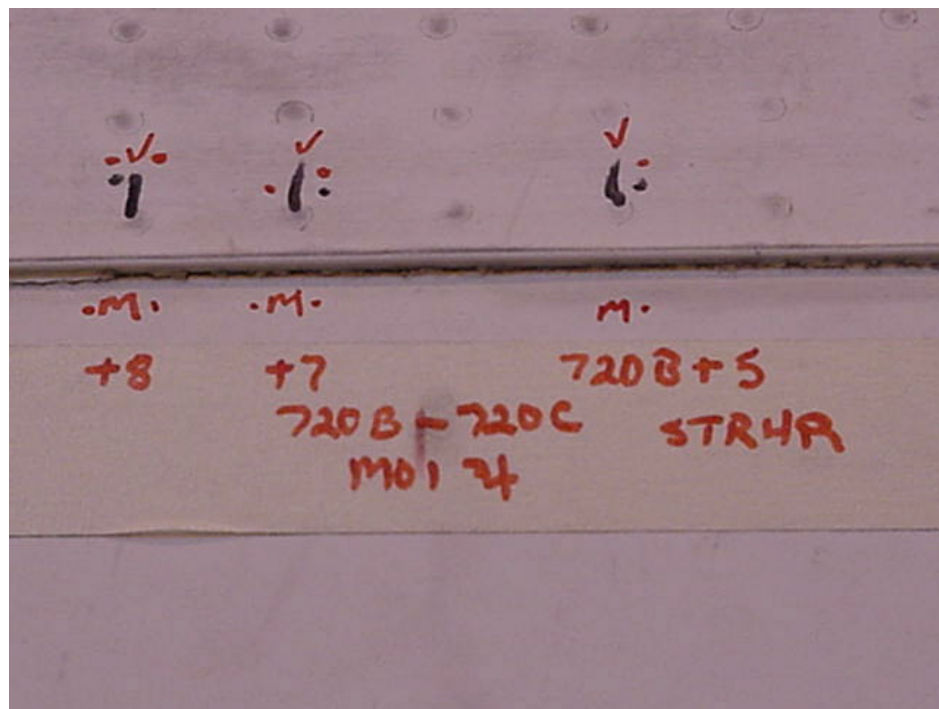 .M. .M. M.
+8 +7 720B+5
720B-720C STR4R
M01